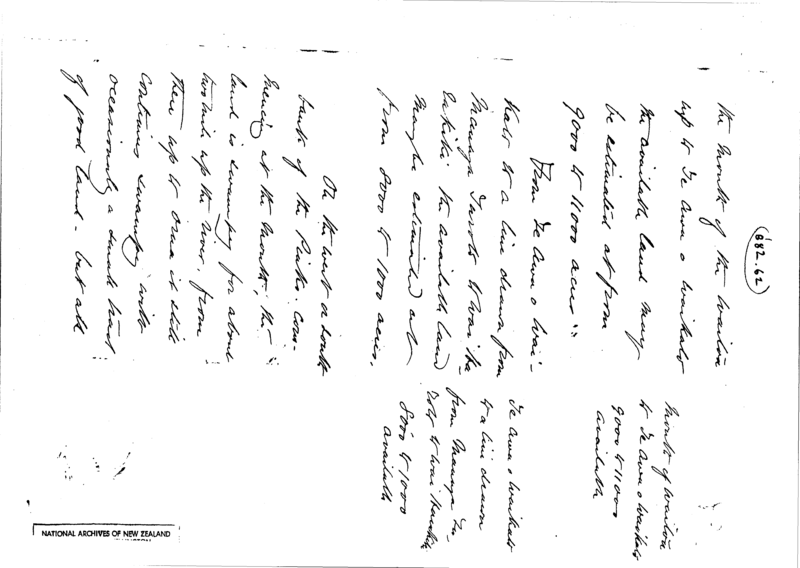 882.62
the mouth of the Waitoa
up to Te Awa o Waikato
the available land may
be estimated at from
9000 to 11000 acres"
From Te Awa o Wai-
kato to a line drawn from
Manga
the available land
may be estimated at
from 8000 to 1000 acres.
On the west & south
bank of the Piako. Com-
mencing at the mouth, the
land is swampy for about
two miles up the river. from
there up to it still
continues swampy with
occasionally a small
of good land - but all
Mouth of Waitoa
to Te Awa o Waikato
9000 to 11000
available
Te Awa o Waikato
to a line drawn
from Manga
to
8000 to 1000
available
NATIONAL ARCHIVES OF NEW ZEALAND